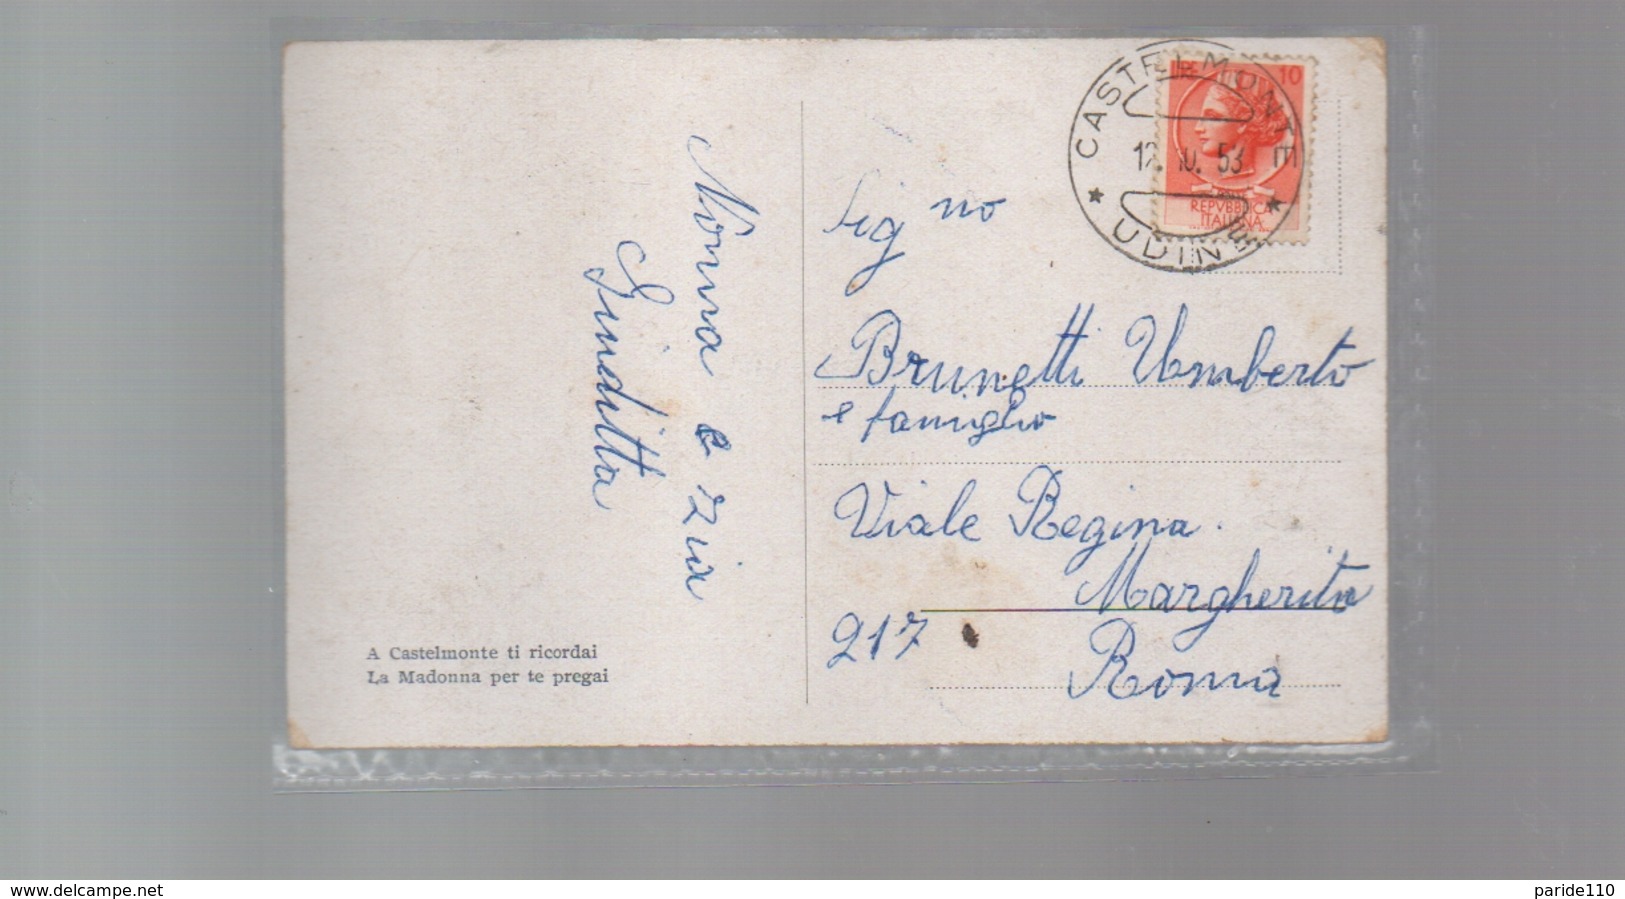 Nonna e Zia
Giuditta
A Castelmonte ti ricordai
La Madonna per te pregai
CASTELMONTE
12.10.53
* UDINE *
10
REPVBBLICA
ITALIANA
Sig no
Brunetti Umberto
e famiglia
Viale Regina
Margherita
217
Roma
www.delcampe.net
paride110